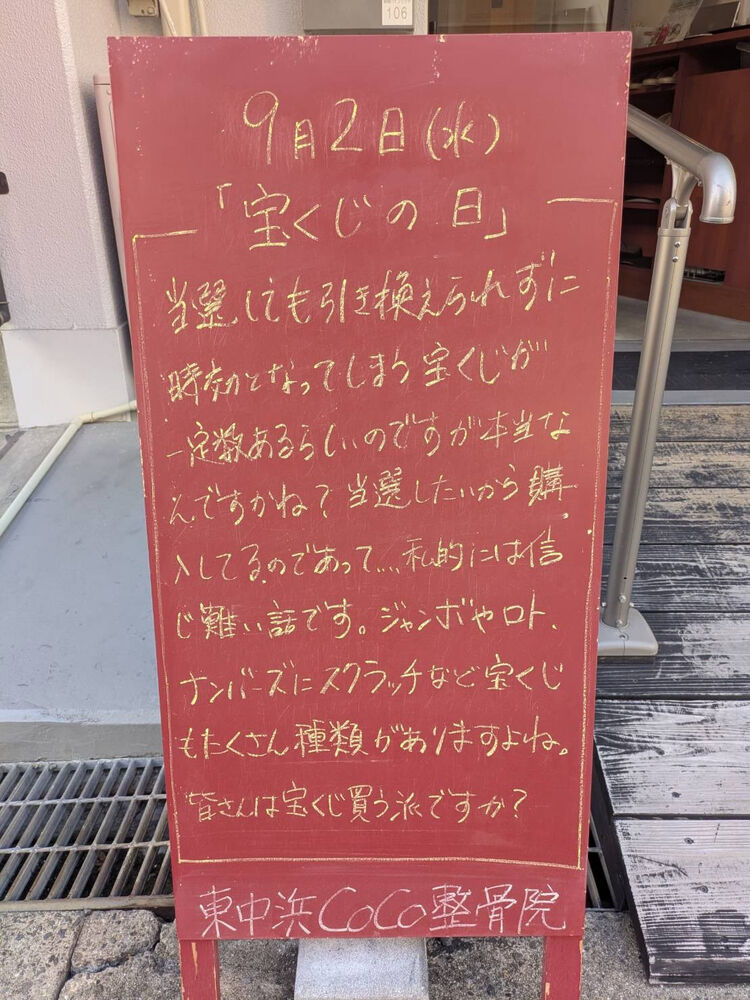 106
9月2日(水)
「宝くじの日」
当選しても引き換えられずに
時効となってしまう宝くじが
一定数あるらしいのですが本当な
んですかね？当選したいから購
入してるのであって....私的には信
じ難い話です。ジャンボやロト、
ナンバーズにスクラッチなど宝くじ
もたくさん種類がありますよね。
皆さんは宝くじ買う派ですか？
東中浜CoCo整骨院